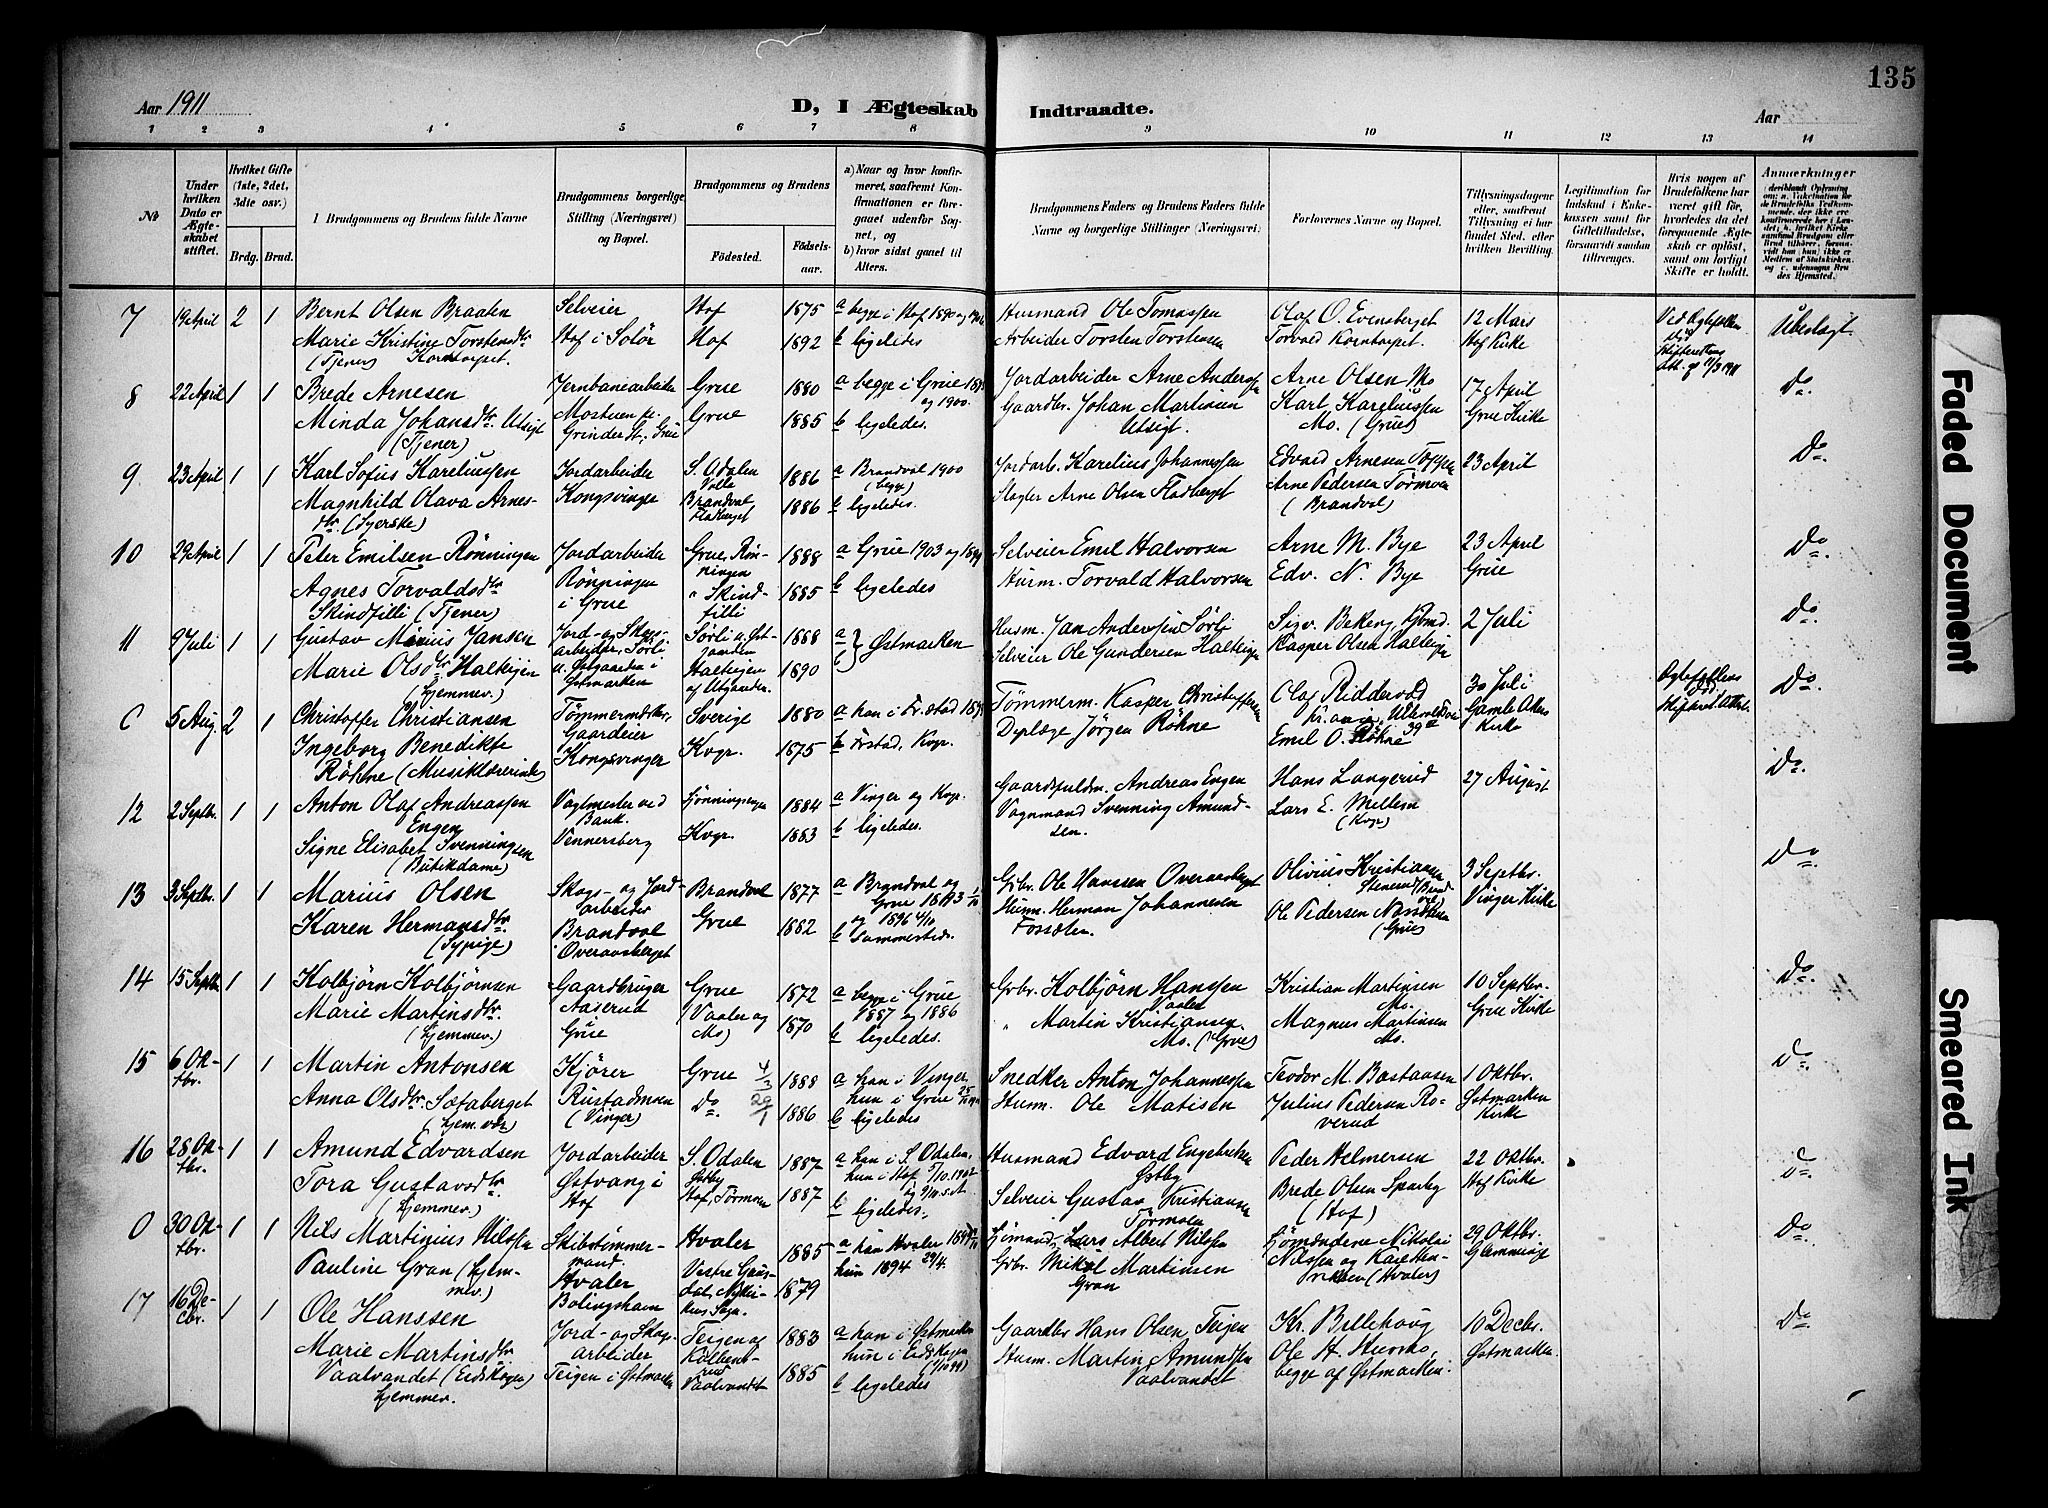 135
Aar 1911
D, I Ægteskab Indtraadte.
Aar
1 2 3 4 5 6 7 8 9 10 11 12 13 14
No
Under hvilken Dato er Ægteskabet stiftet.
Hvilket Gifte (1ste, 2det, 3die osv.)
Brdg. Brud.
Brudgommens og Brudens fulde Navne
Brudgommens borgerlige Stilling (Næringsvei) og Bopæl.
Brudgommens og Brudens
Fødested.
Fødselsaar.
a) Naar og hvor konfirmeret, saafremt Konfirmationen er foregaaet udenfor Sognet, og
b) hvor sidst gaaet til Alters.
Brudgommens Faders og Brudens Faders fulde Navne og borgerlige Stillinger (Næringsvei)
Forlovernes Navne og Bopæl.
Tillysningsdagene eller, saafremt Tillysning ei har fundet Sted, efter hvilken Bevilling.
Legitimation for Indskud i Enkekassen samt for Giftetilladelse, forsaavidt saadan tiltrænges.
Hvis nogen af Brudefolkene har været gift før, hvorledes da det foregaaende Ægteskab er opløst, samt om lovligt Skifte er holdt.
Anmærkninger
7 19 April 2 1 Bernt Olsen Braaten Selveier Hof 1875 a begge i Hof 1890 og Husmand Ole Tomassen Olaf O. Evensberget 12 Mars Ved Ægtefællens Død Ubeslægt.
Marie Kristine Torstensdtr Hof i Solør Hof 1892 b ligeledes Arbeider Torsten Torstensen Torvald Korntorpet. Hof Kirke
(Tjener) Korntorpet.
8 22 April 1 1 Brede Arnesen Jernbanearbeider Grue 1880 a begge i Grue Jordarbeider Arne Anderssen Arne Olsen Mo 17 April Do
Minda Johansdtr. Utsigt Mostuen pr. Grue 1885 og 1900. b ligeledes. Gaardbr. Johan Martinsen Karl Kareliussen Grue Kirke
(Tjener) Grinder St., Grue Utsigt Mo. (Grue)
9 23 April 1 1 Karl Sofus Kareliussen Jordarbeider S. Odalen 1886 a Brandval 1900 Jordarb. Karelius Johannessen Edvard Arnesen 23 April Do
Magnhild Olava Arnes- Kongsvinger Brandval 1886 (begge) b ligeledes. Slagter Arne Olsen Fladberget Arne Pedersen Tørmoen
dtr. (Syerske) Fladberget (Brandval)
10 29 April 1 1 Peter Emilsen Rønningen Jordarbeider Grue, Røn- 1888 a Grue 1903 og 1899 Selveier Emil Halvorsen Arne M. Bye 23 April Do
Agnes Torvaldsdtr Rønningen ningen 1885 b ligeledes Husm. Torvald Halvorsen Edv. N. Bye Grue
Skindfilli (Tjener) i Grue " Skindfilli
11 9 Juli 1 1 Gustav Marius Jansen Jord- og Skog- Sørli 1888 a Husm. Jan Anderssen Sørli Sigv. Bekeng, Gbmd. 2 Juli Do
Marie Olsdtr Halteigen arbeider, Sørli Halteigen 1890 b } Østmarken Selveier Ole Gundersen Halteigen Kasper Olsen Halteigen
(hjemmev.) Østmarken
C 5 Aug. 2 1 Christoffer Christiansen Tømmermester, Sverige 1880 a han i Tømmerm. Kasper Christoffersen Olaf Riddervold 30 Juli Ægtefællens Død. Do
Ingeborg Benedikte Gaardeier Kvgr. 1875 b Kvgr. Jørgen Røhne Emil O. Røhne 39 Gamle Akers Kirke
Røhne (Musiklærerinde) Kongsvinger
12 2 Septbr. 1 1 Anton Olaf Andreassen Vagtmester ved 1884 a Vinger og Kvgr. Andreas Engen Hans Langerud 27 August Do
Engen Bank.
Signe Elisabet Svenningsen Vennersberg Kvgr. 1883 b ligeledes. Vognmand Svenning Amund- Lars E. Mellem
(Butikdame) sen. (Kvgr)
13 3 Septbr. 1 1 Marius Olsen Skogs- og Jord- Brandval 1877 a Brandval og Gbr. Ole Hanssen Overaasberget Olivius Kristiansen 3 Septbr. Do
Karen Hermansdtr. arbeider Grue 1882 Grue 1893 1/10 Husm. Herman Johannesen Ole Pedersen Vinger Kirke
(Sypige) Brandval og 1896 4/10 Fossalen. (Grue)
Overaasberget b Sammesteds.
14 15 Septbr 1 1 Kolbjørn Kolbjørnsen Gaardbruger Grue 1872 a begge i Grue Gbr. Kolbjørn Hanssen Kristian Martinsen 10 Septbr. Do
Marie Martinsdtr. Aaserud (Vaaler og 1870 1887 og 1886 Vaaler Mo.
(hjemmev.) Grue Mo) b ligeledes. " Martin Kristiansen Magnus Martinsen Grue Kirke
Mo. (Grue) Mo.
15 6 Oktbr. 1 1 Martin Antonsen Kjører Grue 4/3 1888 a han i Vinger Snedker Anton Johannessen Teodor M. Bastiansen 1 Oktbr. Do
Anna Olsdtr. Sætaberget Rustadmoen Do 29/1 1886 hun i Grue Husm. Ole Matisen Julius Pedersen Ro- Østmarken
(hjem.vær) (Vinger) b ligeledes verud Kirke
16 28 Oktbr. 1 1 Amund Edvardsen Jordarbeider S. Odalen 1887 a han i S. Odalen, Husmand Edvard Engebretsen Peder Helmersen 22 Oktbr. Do
Tora Gustavsdtr. Østvang i Østby 1887 hun i Hof 5/10.1902 Østby Brede Olsen Sparby Hof Kirke
(hjemmev.) Hof Hof, Tørmoen b ligeledes. Selveier Gustav Kristiansen (Hof)
Tørmoen
O 30 Oktbr. 1 1 Nils Martinius Nilssen Skibstømmer- Hvaler 1885 a han Hvaler Sjømand Lars Albert Nilssen Sjømændene Nikolai 29 Oktbr. Do
Pauline Gran (hjem- mand Vestre Gaus- 1879 hun 1894 29/4. Gbr. Mikal Martinsen Nilssen og Glemminge
mev.) Hvaler dal, Gran (Hvaler)
17 16 Decbr. 1 1 Ole Hanssen Jord- og Skog- Teigen og 1883 a han i Østmarken Gaardbr Hans Olsen Teigen Kr. Billehaug 10 Decbr. Do
Marie Martinsdtr arbeider 1885 hun i Eidskogen Husm. Martin Amundsen Ole H. Østmarken.
Vaalvandet (Eidskogen) Teigen i Østmarken Vaalvandet b ligeledes Vaalvandet begge af Østmarken.
hjemmev.
Faded Document
Smeared Ink